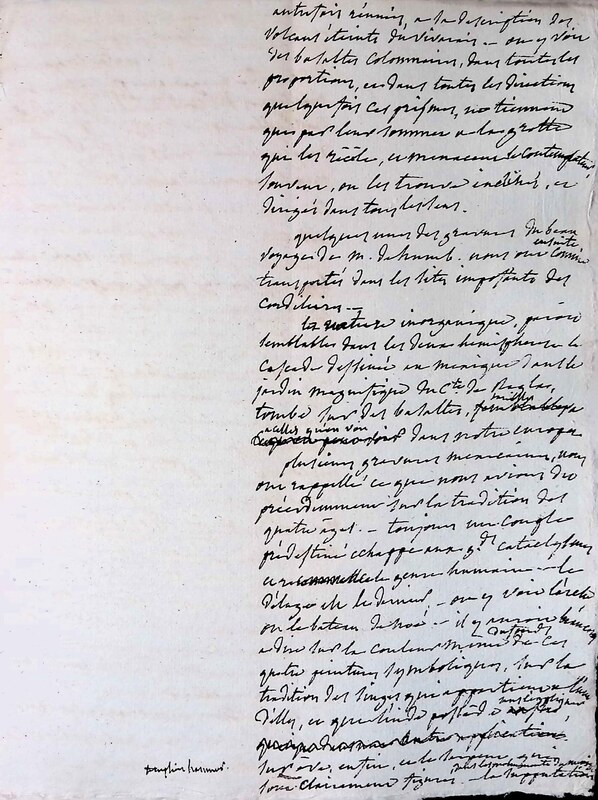 autrefois réunies, a la description des
volcans éteints du vivarais — on y voit
des basaltes colonnaires, dans toutes les
proportions, et dans toutes les directions
quelquefois ces prismes, ne tiennent
que par leur sommet a la grotte
qui les recèle, et menacent le contemplateur
souvent, on les trouve inclinés, et
dirigés dans tous les sens.
quelques unes des gravures du beau
voyage de m. de humb. nous ont ensuite comme
transportés dans les sites imposants des
cordilières —
la nature inorganique, paroit
semblable dans les deux hémisphères la
cascade dessinée au mexique dans le
jardin magnifique du Cte. de Regla,
tombe sur des basaltes,
a celles qu'on voit dans notre europe
plusieurs gravures mexicaines, nous
ont rappellé ce que nous avions dit
précédemment sur la tradition des
quatre âges. — toujours un couple
prédestiné échappe aux gds. cataclysmes
et le genre humain — le
déluge est le dernier — on y voit l'arche
ou le bateau de noé — il y auroit
a dire sur la couleur même de ces
quatre peintures symboliques, sur la
tradition des singes qui appartient a l'une
d'elles, et que l'inde possède
enfin, et le serpent qui
sont clairement figurés —